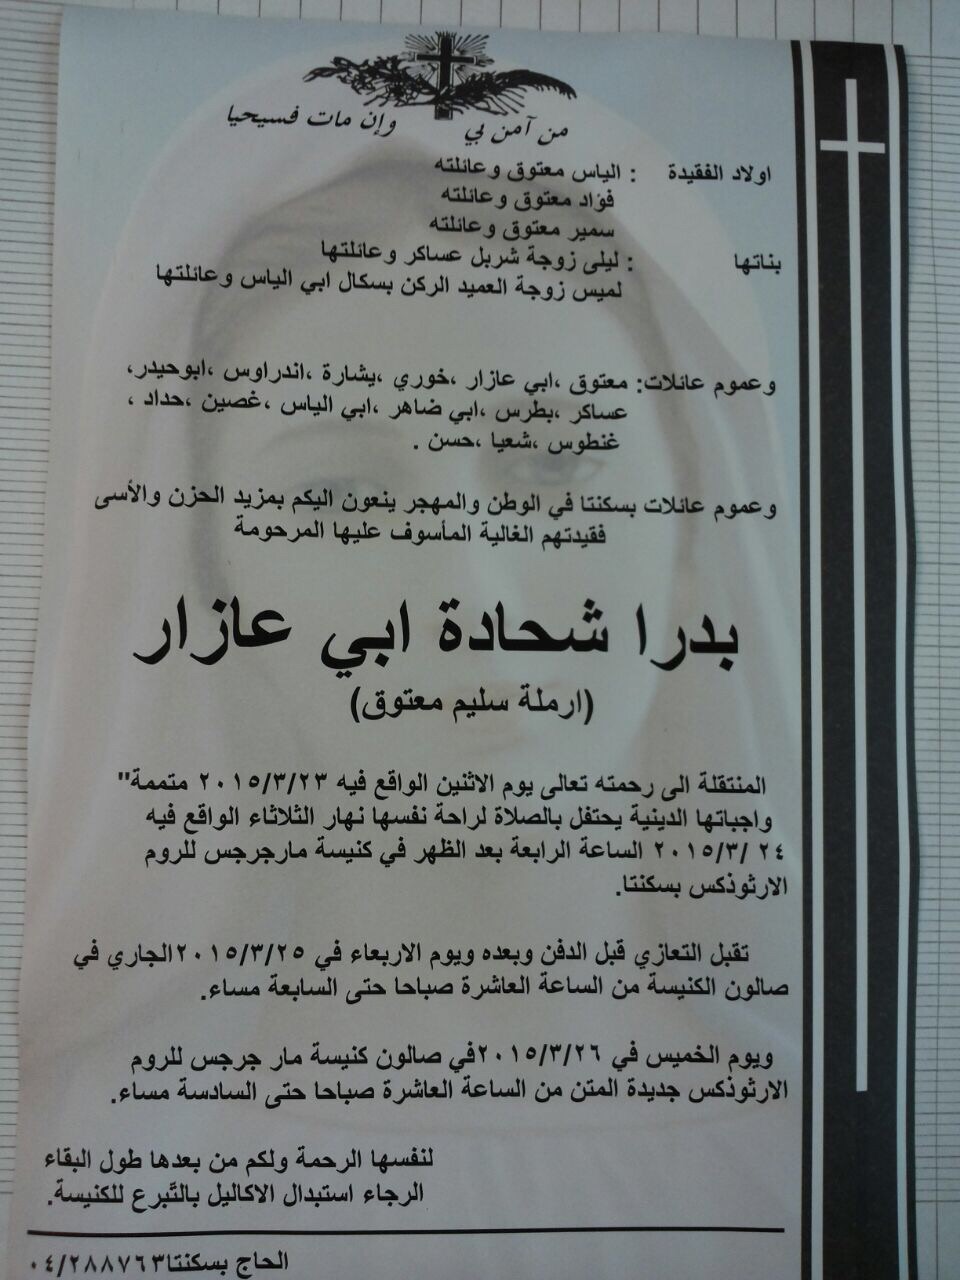 من آمن بي وإن مات فسيحيا
اولاد الفقيدة : الياس معتوق وعائلته
فؤاد معتوق وعائلته
سمير معتوق وعائلته
بناتها : ليلى زوجة شربل عساكر وعائلتها
لميس زوجة العميد الركن بسكال ابي الياس وعائلتها
وعموم عائلات: معتوق ،ابي عازار ،خوري ،يشارة ،اندراوس ،ابوحيدر،
عساكر ،بطرس ،ابي ضاهر ،ابي الياس ،غصين ،حداد ،
غنطوس ،شعيا ،حسن .
وعموم عائلات بسكنتا في الوطن والمهجر ينعون اليكم بمزيد الحزن والأسى
فقيدتهم الغالية المأسوف عليها المرحومة
بدرا شحادة ابي عازار
(ارملة سليم معتوق)
المنتقلة الى رحمته تعالى يوم الاثنين الواقع فيه ٢٠١٥/٣/٢٣ متممة"
واجباتها الدينية يحتفل بالصلاة لراحة نفسها نهار الثلاثاء الواقع فيه
٢٤ /٢٠١٥/٣ الساعة الرابعة بعد الظهر في كنيسة مارجرجس للروم
الارثوذكس بسكنتا.
تقبل التعازي قبل الدفن وبعده ويوم الاربعاء في ٢٠١٥/٣/٢٥الجاري في
صالون الكنيسة من الساعة العاشرة صباحا حتى السابعة مساء.
ويوم الخميس في ٢٠١٥/٣/٢٦في صالون كنيسة مار جرجس للروم
الارثوذكس جديدة المتن من الساعة العاشرة صباحا حتى السادسة مساء.
لنفسها الرحمة ولكم من بعدها طول البقاء
الرجاء استبدال الاكاليل بالتَّبرع للكنيسة.
الحاج بسكنتا٠٤/٢٨٨٧٦٣